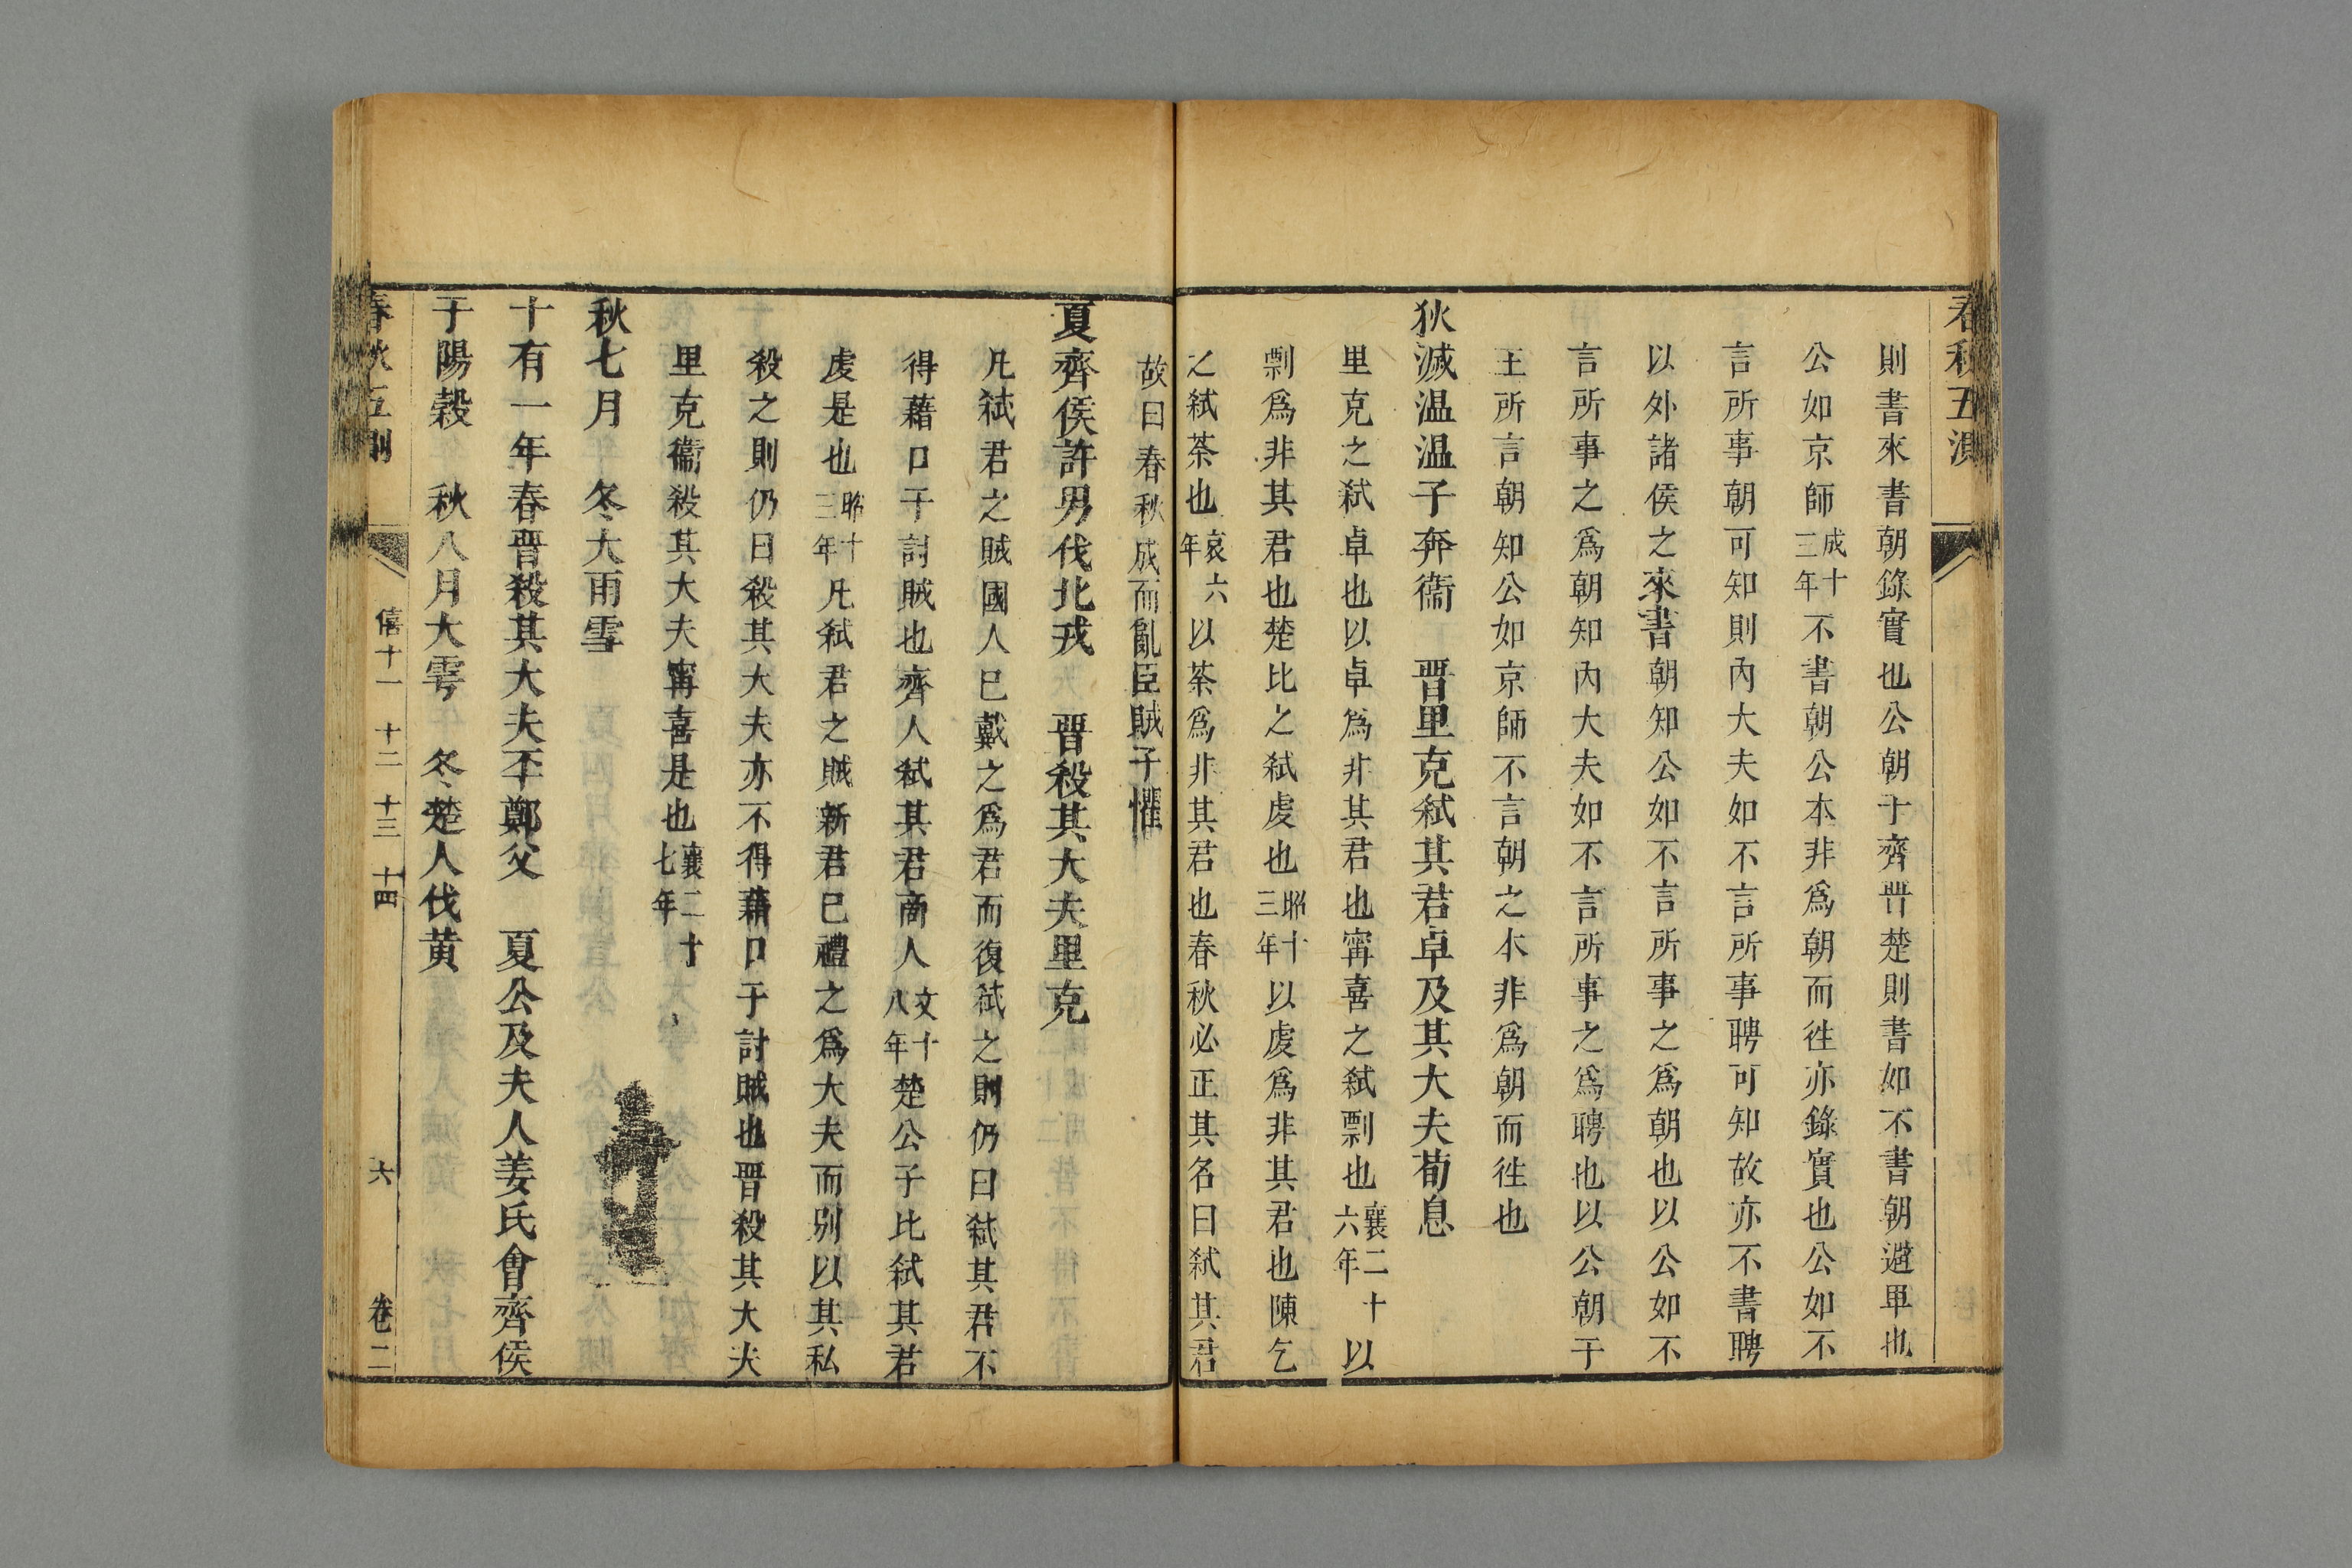 春秋五測
則書來書朝錄實也公朝于齊晉楚則書如不書朝避卑也
公如京師成十三年不書朝公本非爲朝而徃亦錄實也公如不
言所事朝可知則內大夫如不言所事聘可知故亦不書聘
以外諸侯之來書朝知公如不言所事之爲朝也以公如不
言所事之爲朝知內大夫如不言所事之爲聘也以公朝于
王所言朝知公如京師不言朝之本非爲朝而徃也
狄滅温温子奔衞　晋里克弑其君卓及其大夫荀息
里克之弑卓也以卓爲非其君也甯喜之弑剽也襄二十六年以
剽爲非其君也楚比之弑虔也昭十三年以虔爲非其君也陳乞
之弑荼也哀六年以荼爲非其君也春秋必正其名曰弑其君
故曰春秋成而亂臣賊子懼
夏齊侯許男伐北戎　晋殺其大夫里克
凡弑君之賊國人已戴之爲君而復弑之則仍曰弑其君不
得藉口于討賊也齊人弑其君商人文十八年楚公子比弑其君
虔是也昭十三年凡弑君之賊新君已禮之爲大夫而別以其私
殺之則仍曰殺其大夫亦不得藉口于討賊也晋殺其大夫
里克衞殺其大夫甯喜是也襄二十七年
秋七月　冬大雨雪
十有一年春晋殺其大夫丕鄭父　夏公及夫人姜氏會齊侯
于陽穀　秋八月大雩　冬楚人伐黄
春秋五測　僖十一　十二　十三　十四　六　卷二